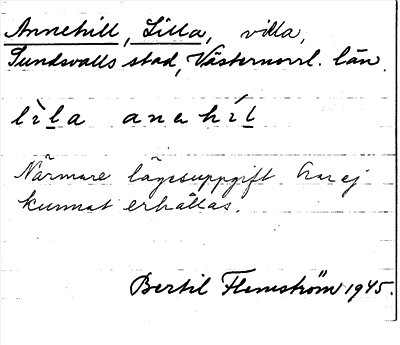 Annehill, Lilla, villa,
Sundsvalls stad, Västernorrl. län.
lìla anahíl
Närmare lägesuppgift har ej
kunnat erhållas.
Bertil Flemström 1945.